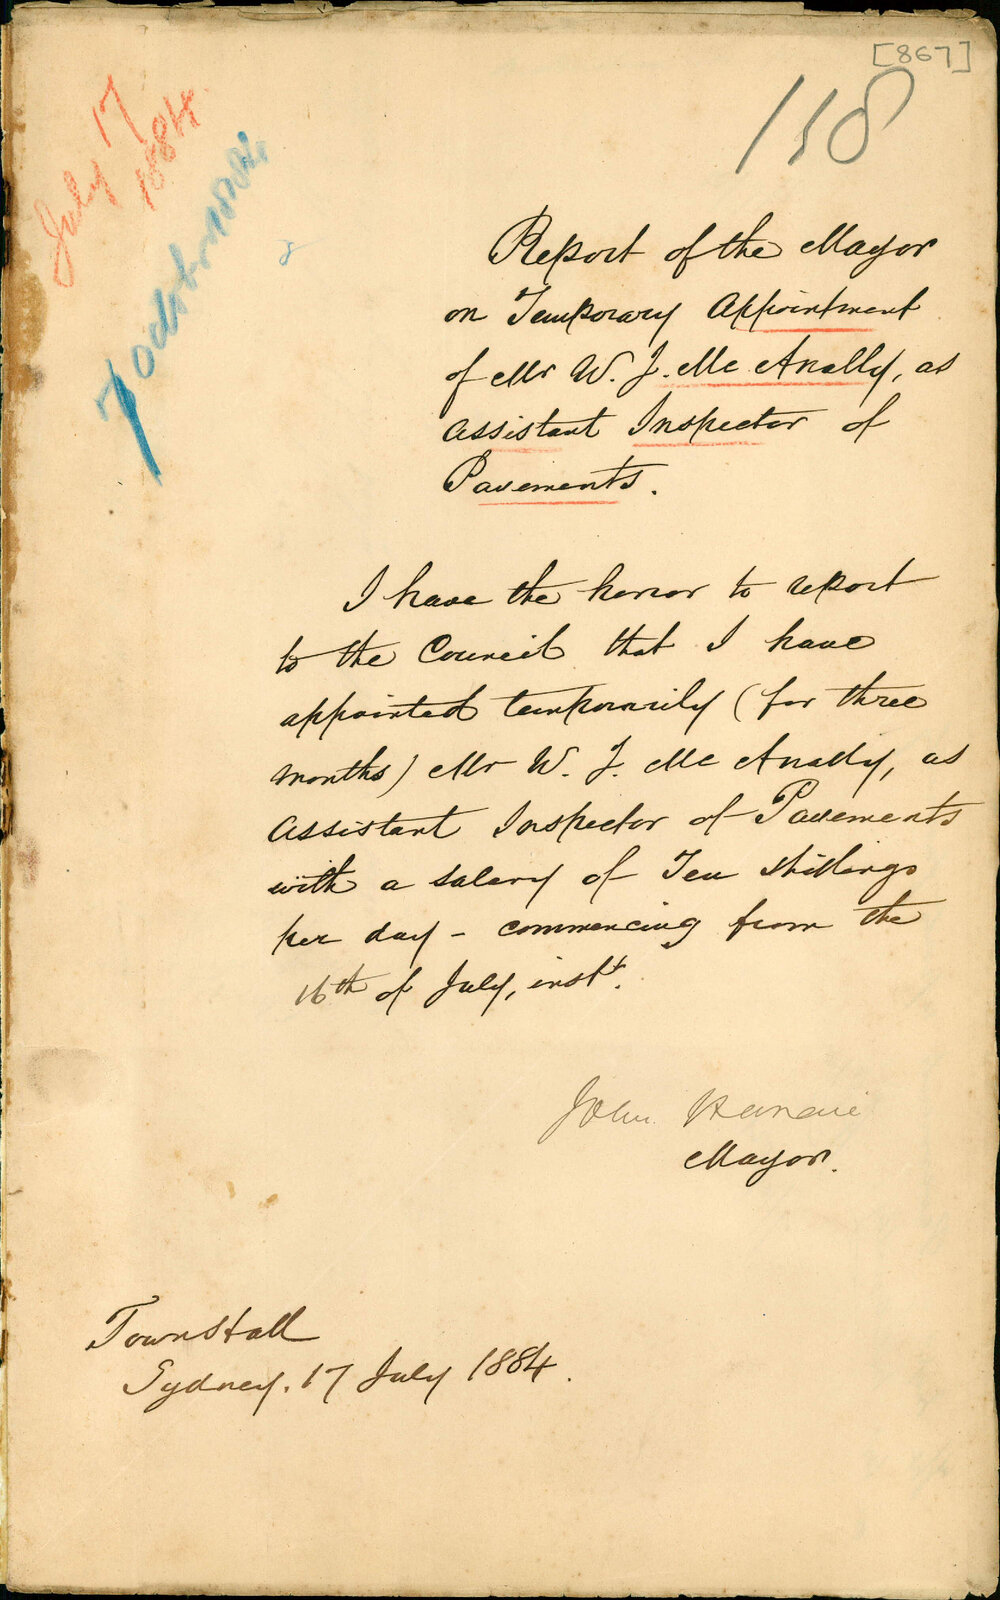 [867]
118
July 17
1884
Report of the Mayor
on Temporary Appointment
of Mr W. J. McAnally, as
Assistant Inspector of
Pavements.
I have the honor to report
to the Council that I have
appointed temporarily (for three
months) Mr W. J. McAnally, as
Assistant Inspector of Pavements
with a salary of Ten shillings
per day - commencing from the
16th of July, inst.
John Hardie
Mayor.
Town Hall
Sydney. 17 July 1884.